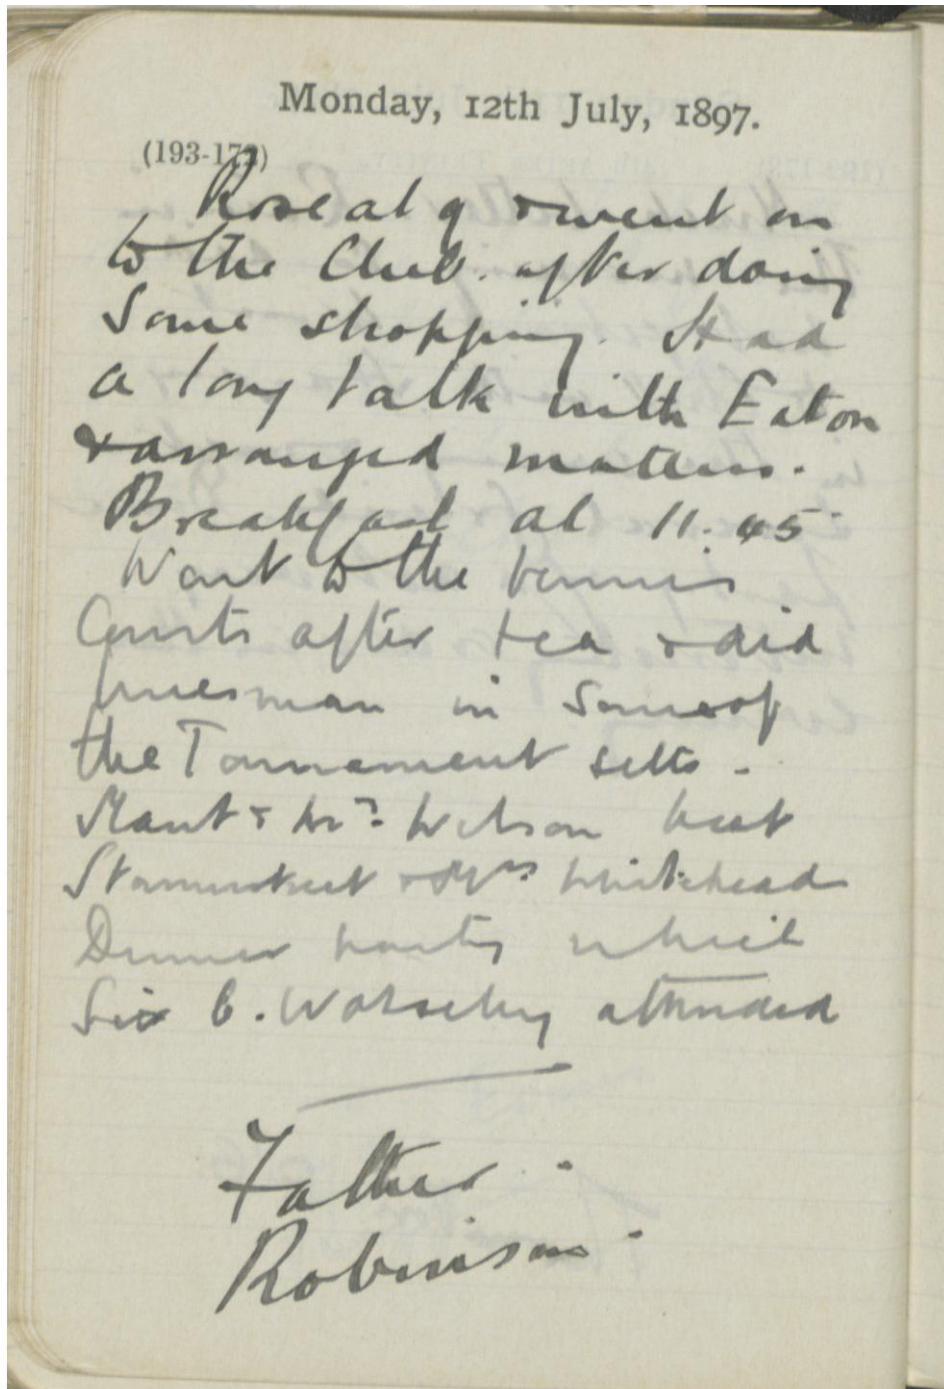 Monday, 12th July, 1897.
(193-172)
Rose at 9 & went on
to the Club. after doing
Some shopping. Had
a long talk with Eaton
& arranged matters.
Breakfast at 11.45
Went to the tennis
Courts after tea & did
linesman in Some of
the Tournament setts -
Mant & Mrs. Wilson beat
& Mrs Whitehead
Dinner party which
Six C. Wolseley attended
Father.
Robinson.